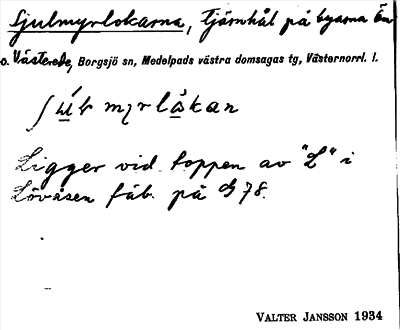 Sjulmyrlokarna, Tjärnhål på byarna Ön
o. Västerede, Borgsjö sn, Medelpads västra domsagas tg, Västernorrl. l.
Ligger vid toppen av "L" i
Lövåsen fäb. på G 78.
VALTER JANSSON 1934